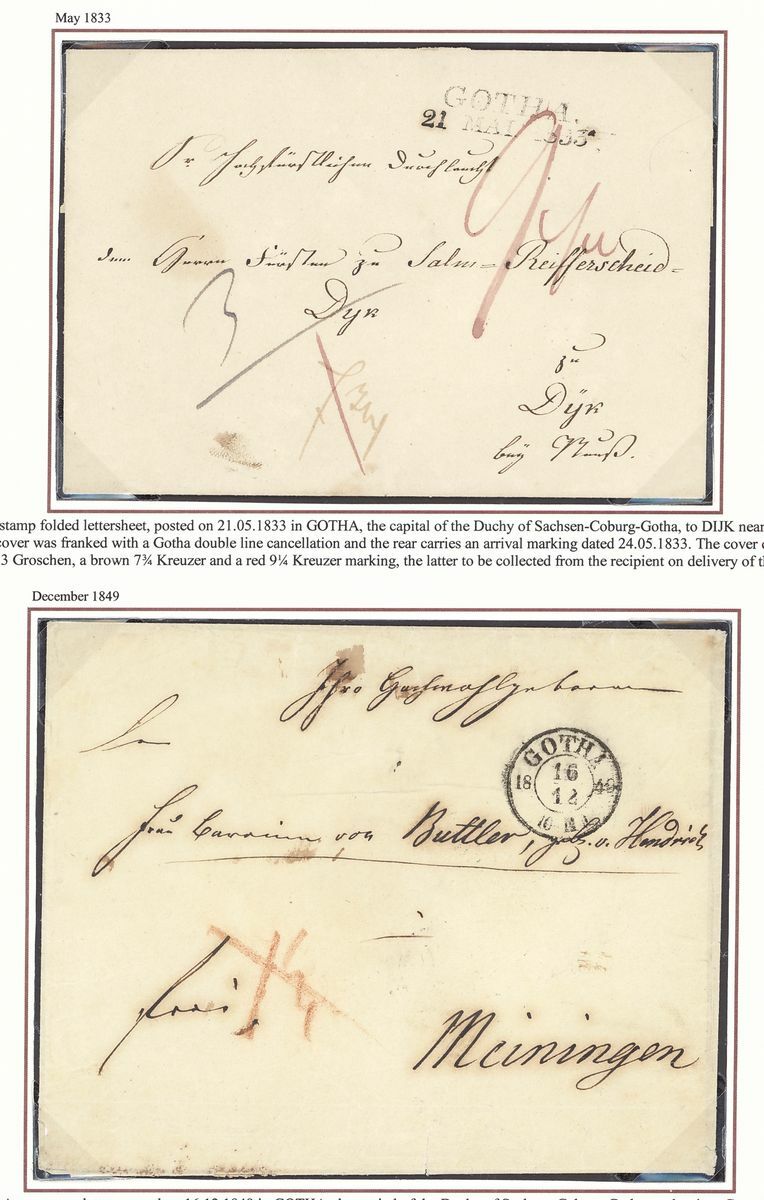 May 1833
GOTHA.
21 MAI 1833
Sr. Hochfürstlichen Durchlaucht
dem Herrn Fürsten zu Salm=Reifferscheid=
Dyk
3
zu
Dÿk
beÿ Neuß.
stamp folded lettersheet, posted on 21.05.1833 in GOTHA, the capital of the Duchy of Sachsen-Coburg-Gotha, to DIJK near
cover was franked with a Gotha double line cancellation and the rear carries an arrival marking dated 24.05.1833. The cover
3 Groschen, a brown 7¾ Kreuzer and a red 9¼ Kreuzer marking, the latter to be collected from the recipient on delivery of
December 1849
Ihro Hochwohlgeboren
GOTHA
16
18 49
12
Frau Baronin von Buttler, geb. v. Hendrich
frei.
Meiningen